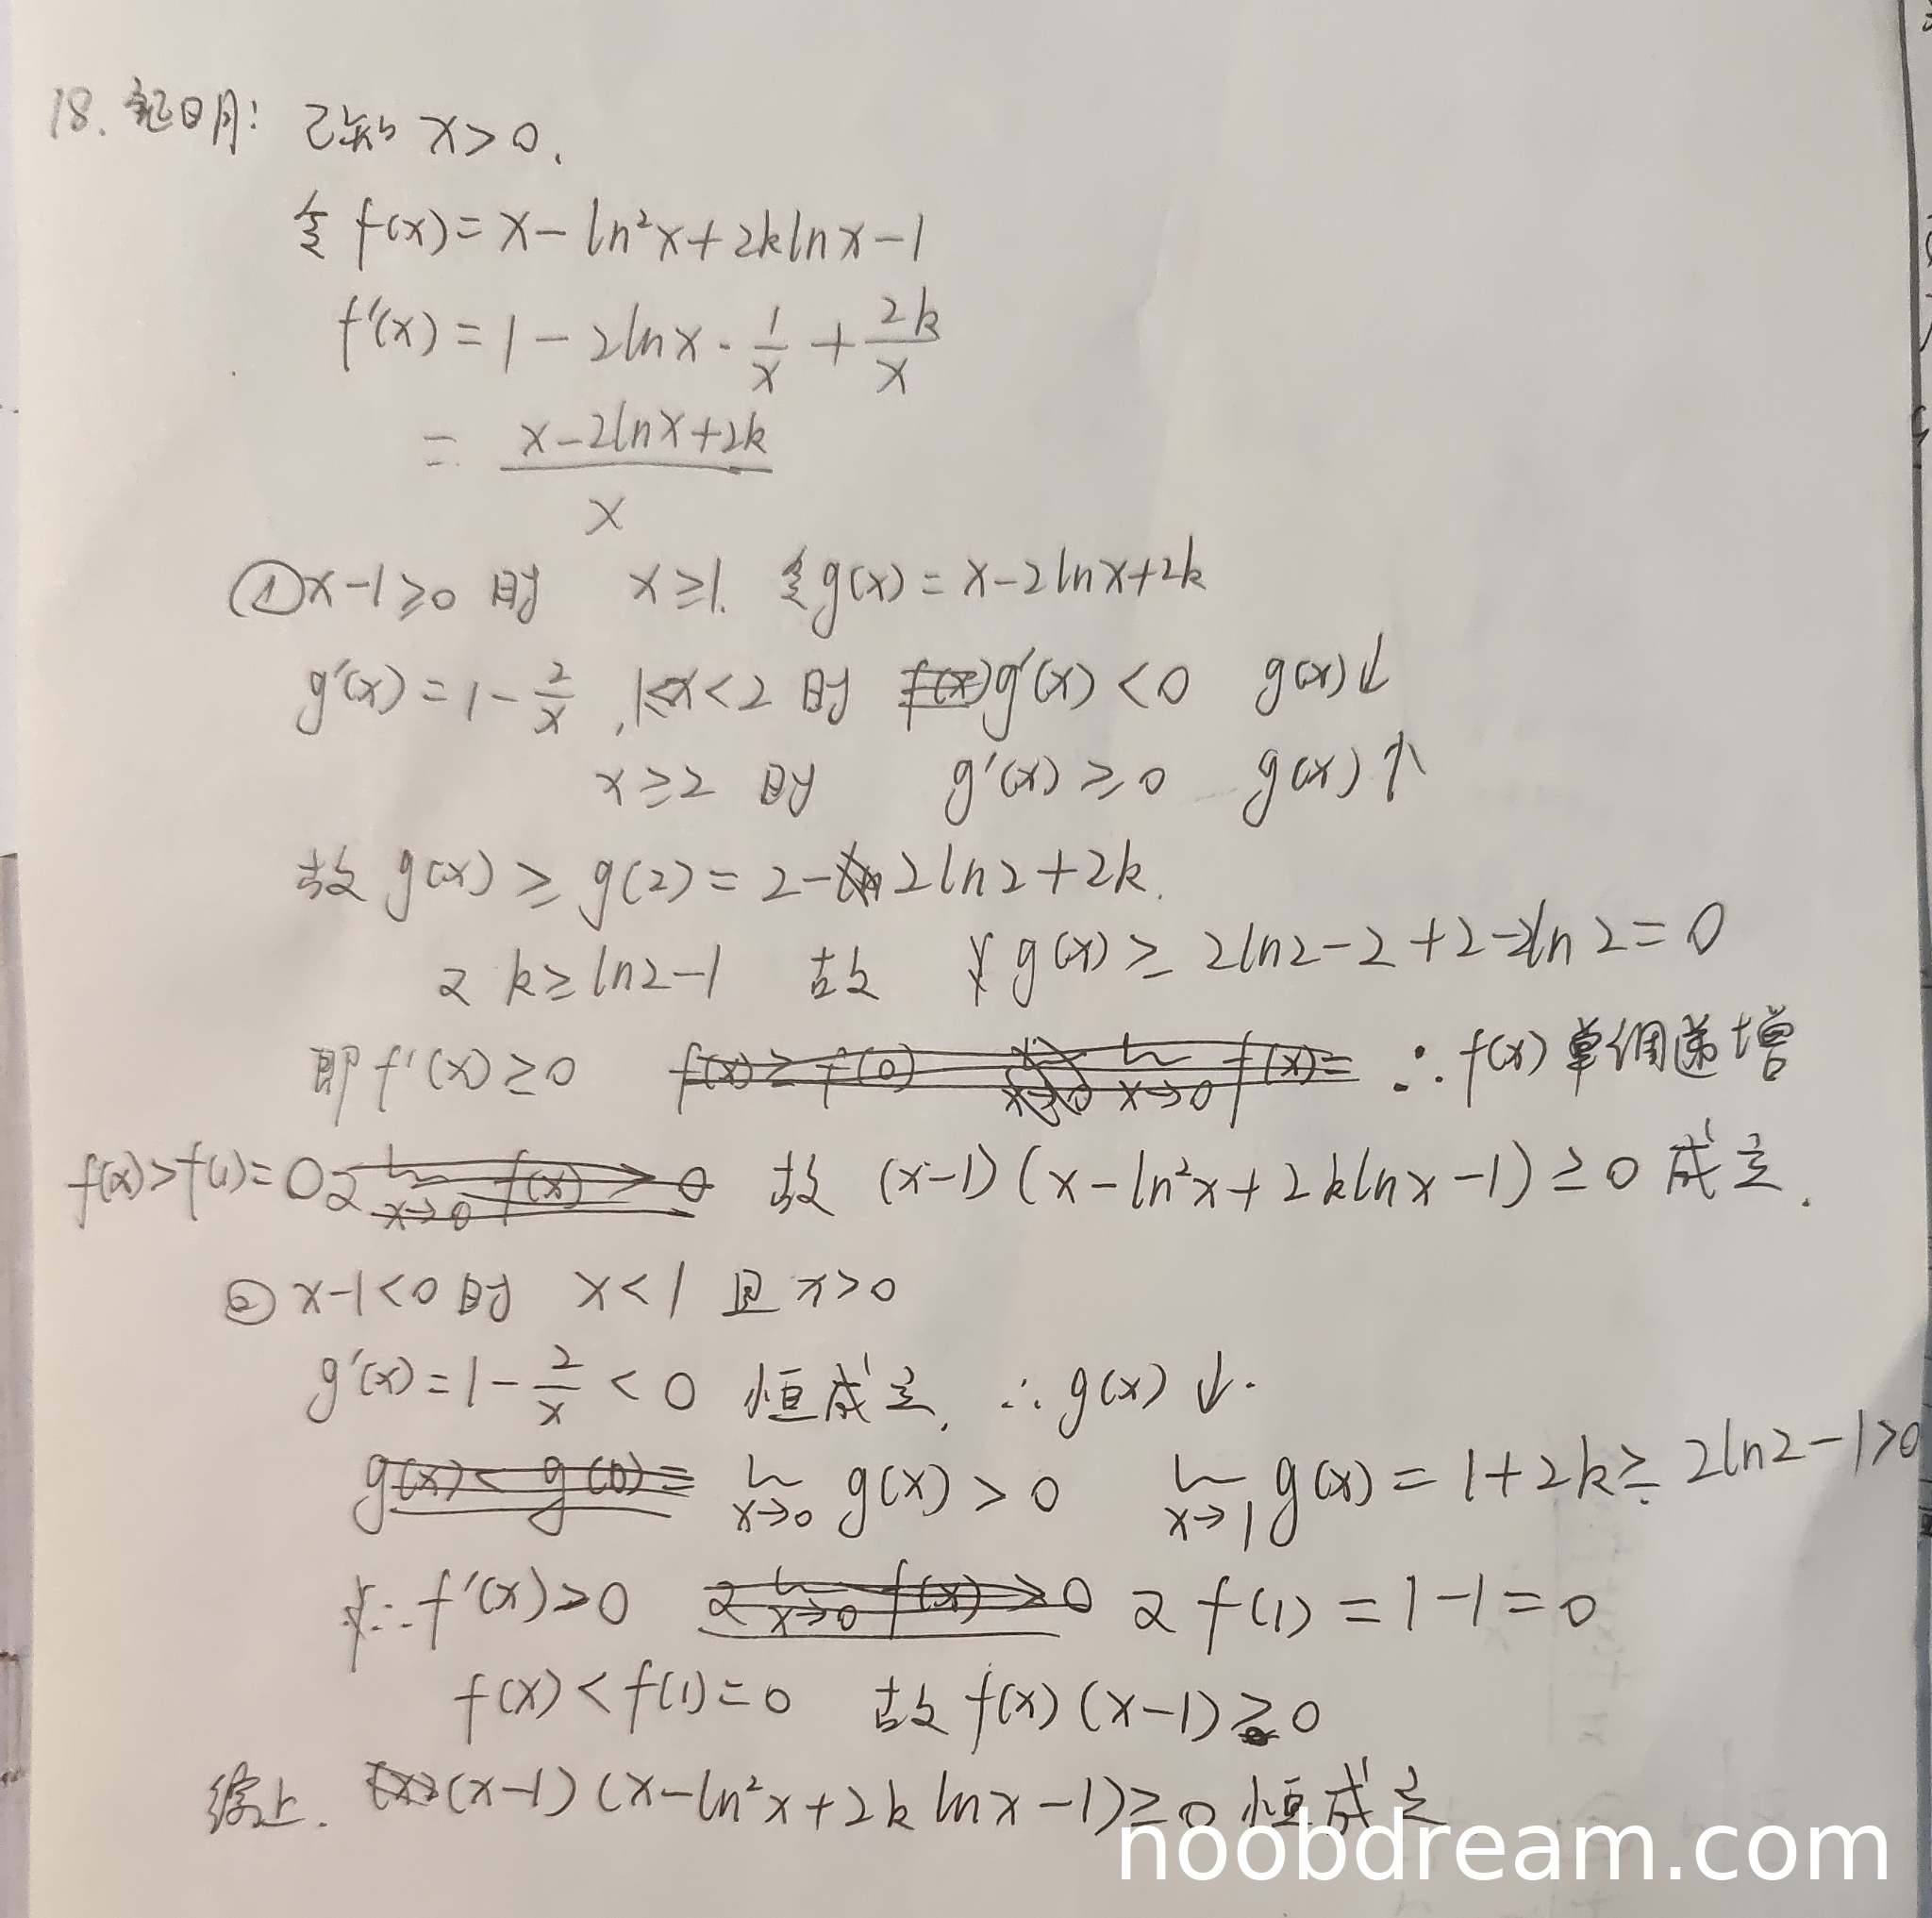 18. 证明: 已知 x>0.
令 f(x)=x-ln²x+2klnx-1
f'(x)=1-2lnx·1/x+2k/x
=(x-2lnx+2k)/x
① x-1≥0 时 x≥1. 令g(x)=x-2lnx+2k
g'(x)=1-2/x, 1<x<2 时 g'(x)<0 g(x)↓
x≥2 时 g'(x)≥0 g(x)↑
故 g(x)≥g(2)=2-2ln2+2k.
又 k≥ln2-1 故 g(x)≥2ln2-2+2-2ln2=0
即f'(x)≥0 ∴f(x)单调递增
f(x)>f(1)=0 故 (x-1)(x-ln²x+2klnx-1)≥0 成立.
② x-1<0 时 x<1 且 x>0
g'(x)=1-2/x<0 恒成立. ∴g(x)↓.
lim x→0 g(x)>0 lim x→1 g(x)=1+2k≥2ln2-1>0
∴f'(x)>0 又 f(1)=1-1=0
f(x)<f(1)=0 故 f(x)(x-1)≥0
综上. (x-1)(x-ln²x+2klnx-1)≥0 恒成立
noobdream.com